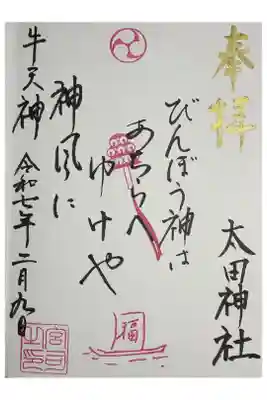 奉拝
太田神社
びんぼう神は
あちらへ
ゆけや
神風に
牛天神
令和七年二月九日
福